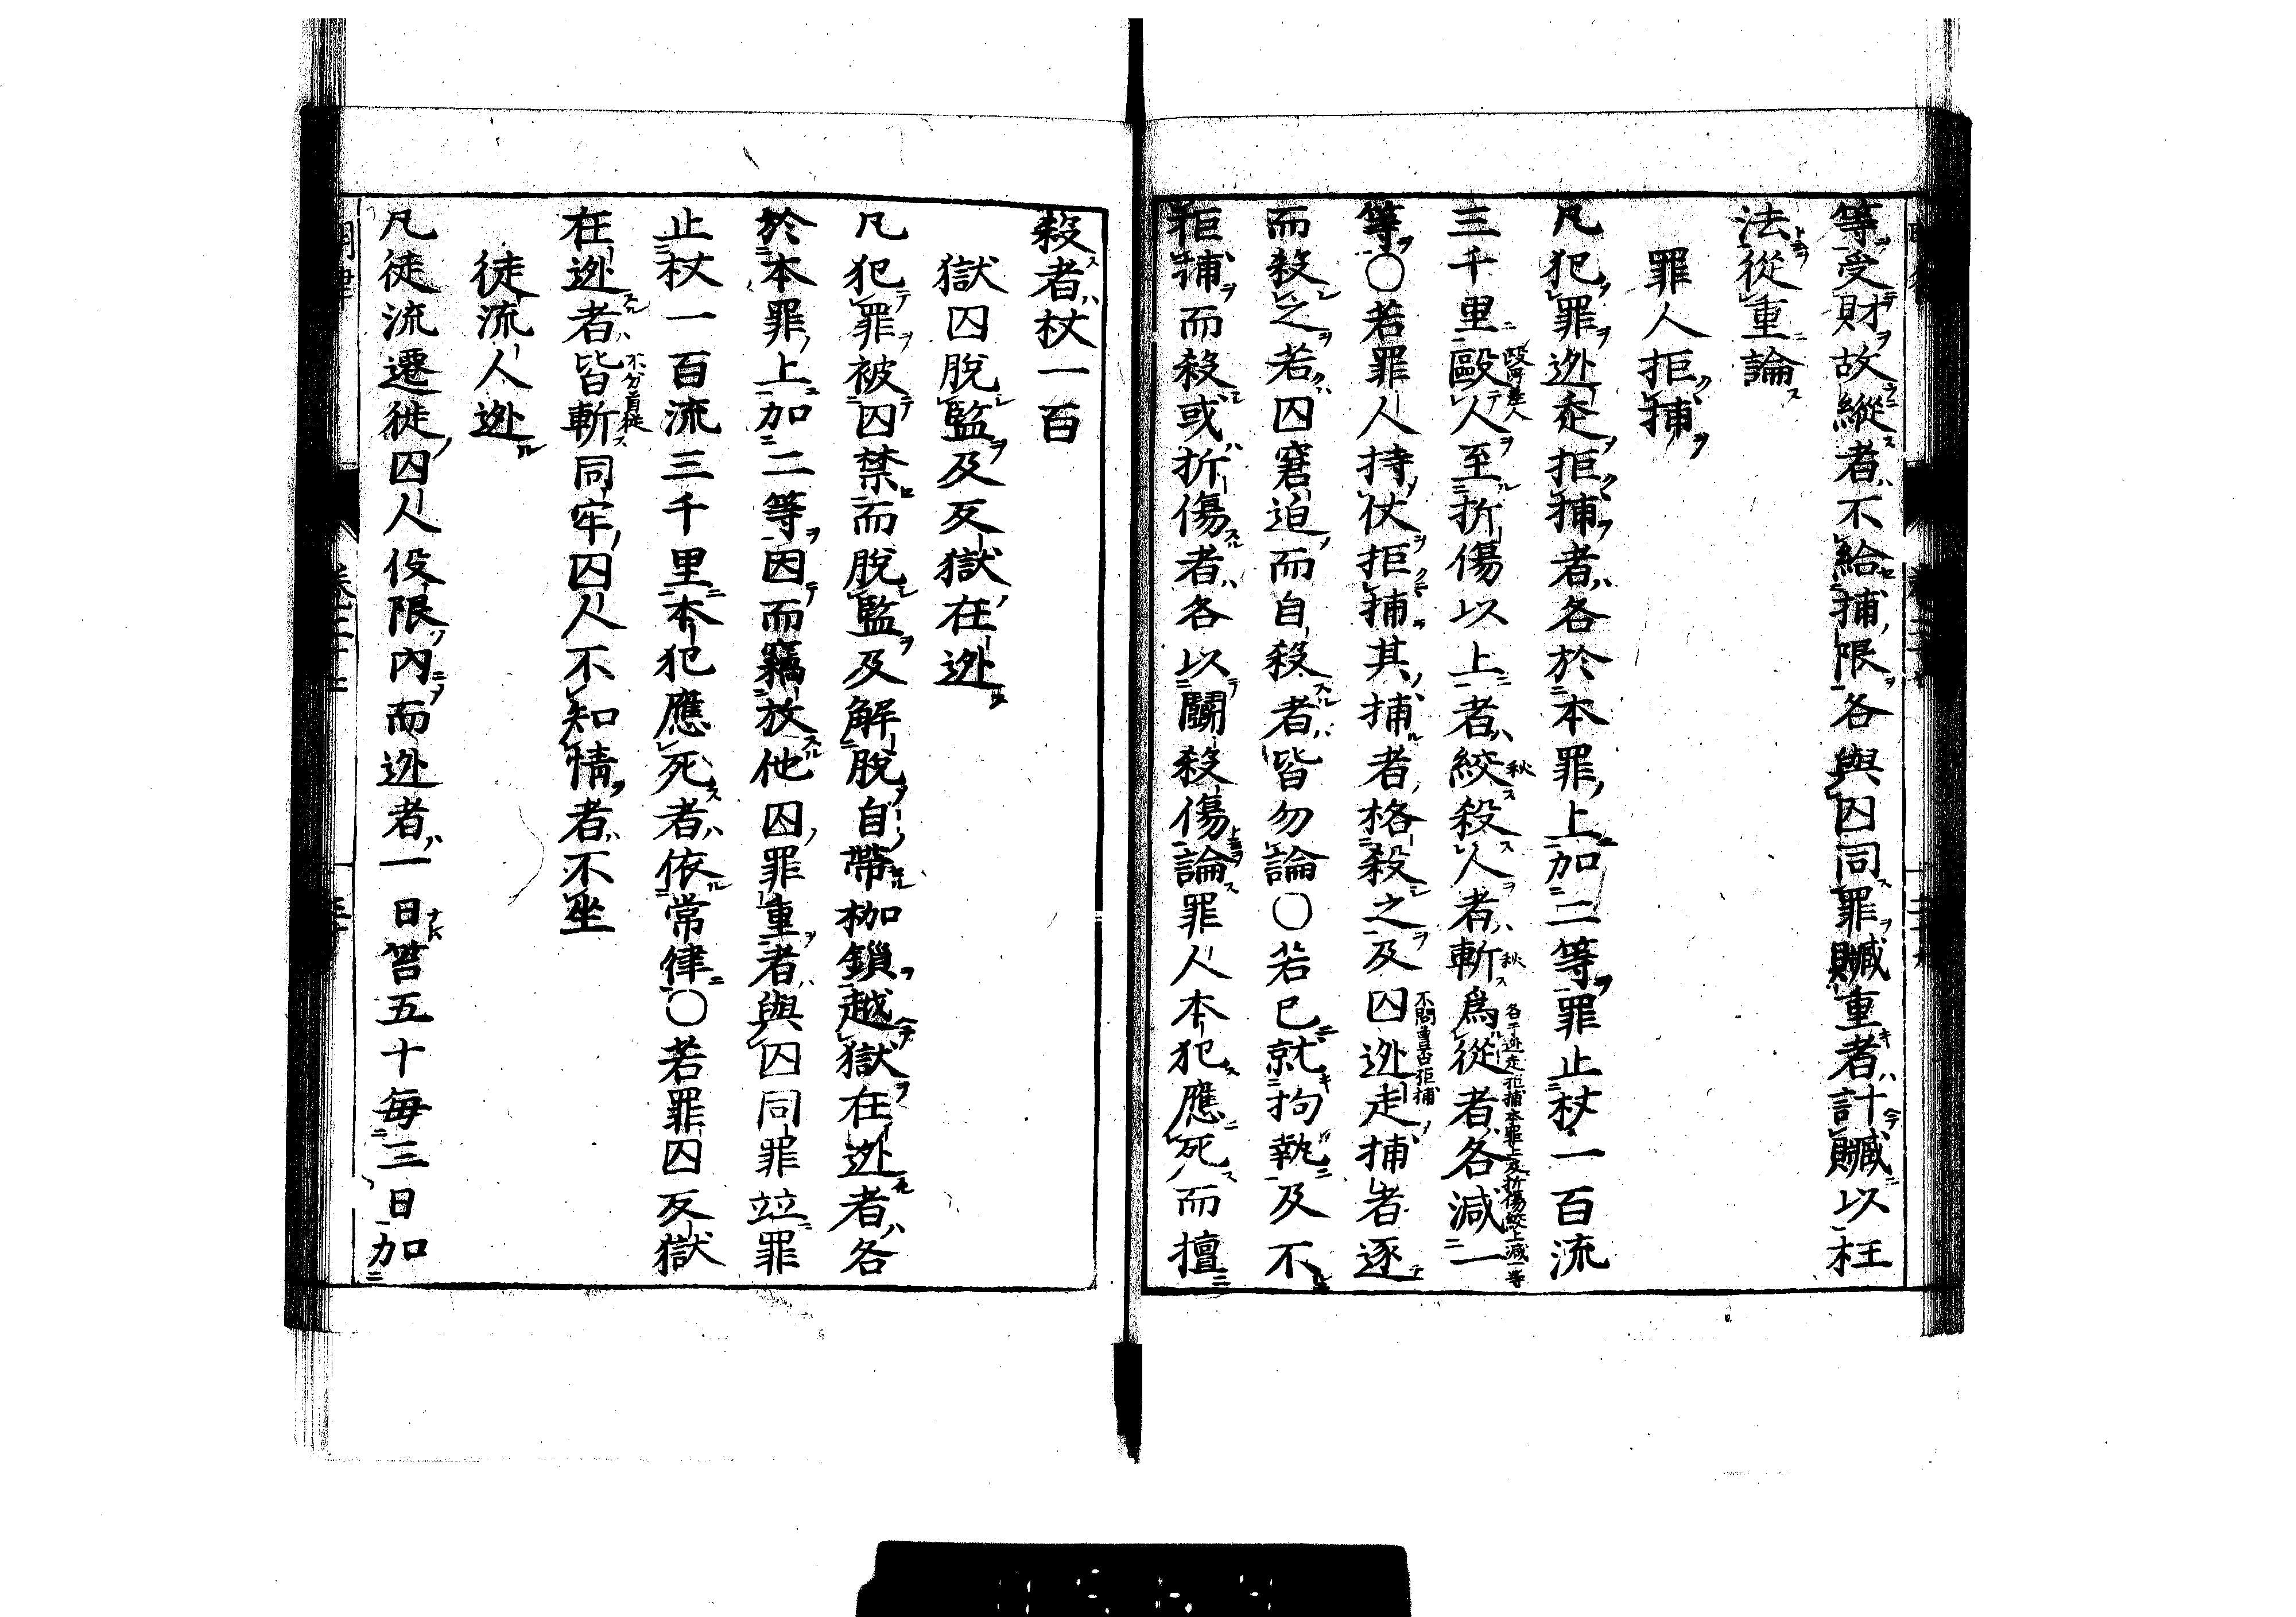 等受財故縱者不給捕限各與囚同罪贓重者計贓以枉
法從重論
罪人拒捕
凡犯罪迯走拒捕者各於本罪上加二等罪止杖一百流
三千里毆人至折傷以上者絞殺人者斬爲從者各減一
等〇若罪人持仗拒捕其捕者格殺之及囚迯走捕者逐
而殺之若囚窘迫而自殺者皆勿論〇若已就拘執及不
拒捕而殺或折傷者各以鬬殺傷論罪人本犯應死而擅
殺者杖一百
獄囚脫監及反獄在迯
凡犯罪被囚禁而脫監及解脫自帶枷鎖越獄在迯者各
於本罪上加二等因而竊放他囚罪重者與囚同罪竝罪
止杖一百流三千里本犯應死者依常律〇若罪囚反獄
在迯者皆斬同牢囚人不知情者不坐
徒流人迯
凡徒流遷徙囚人役限內而迯者一日笞五十每三日加
不問曾否拒捕
各于迯走拒捕本罪上及折傷絞上減一等
不分首從
秋
秋